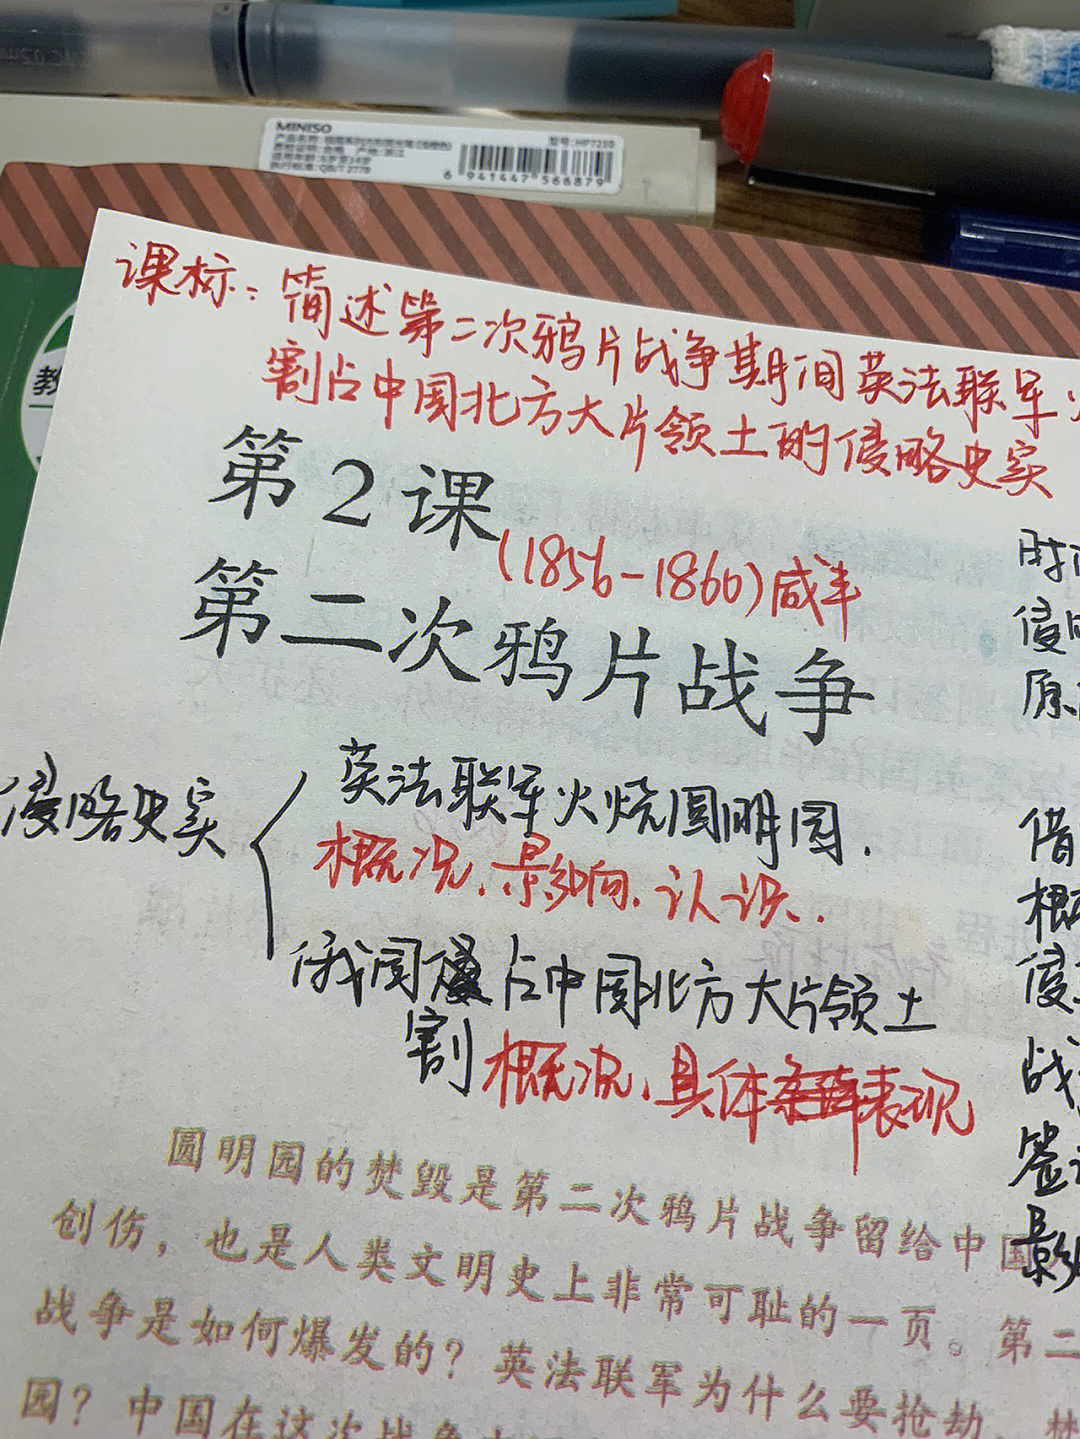 MINISO
6 941447 566879
教
课标：简述第二次鸦片战争期间英法联军
割占中国北方大片领土的侵略史实
第2课
(1856-1860)咸丰
第二次鸦片战争
侵略史实
英法联军火烧圆明园.
概况.影响.认识.
俄国占中国北方大片领土
割
概况.具体表现
时
侵
原
借
概
侵
战
签
影
圆明园的焚毁是第二次鸦片战争留给中国
创伤，也是人类文明史上非常可耻的一页。第二
战争是如何爆发的？英法联军为什么要抢劫、焚
园？中国在这次战争